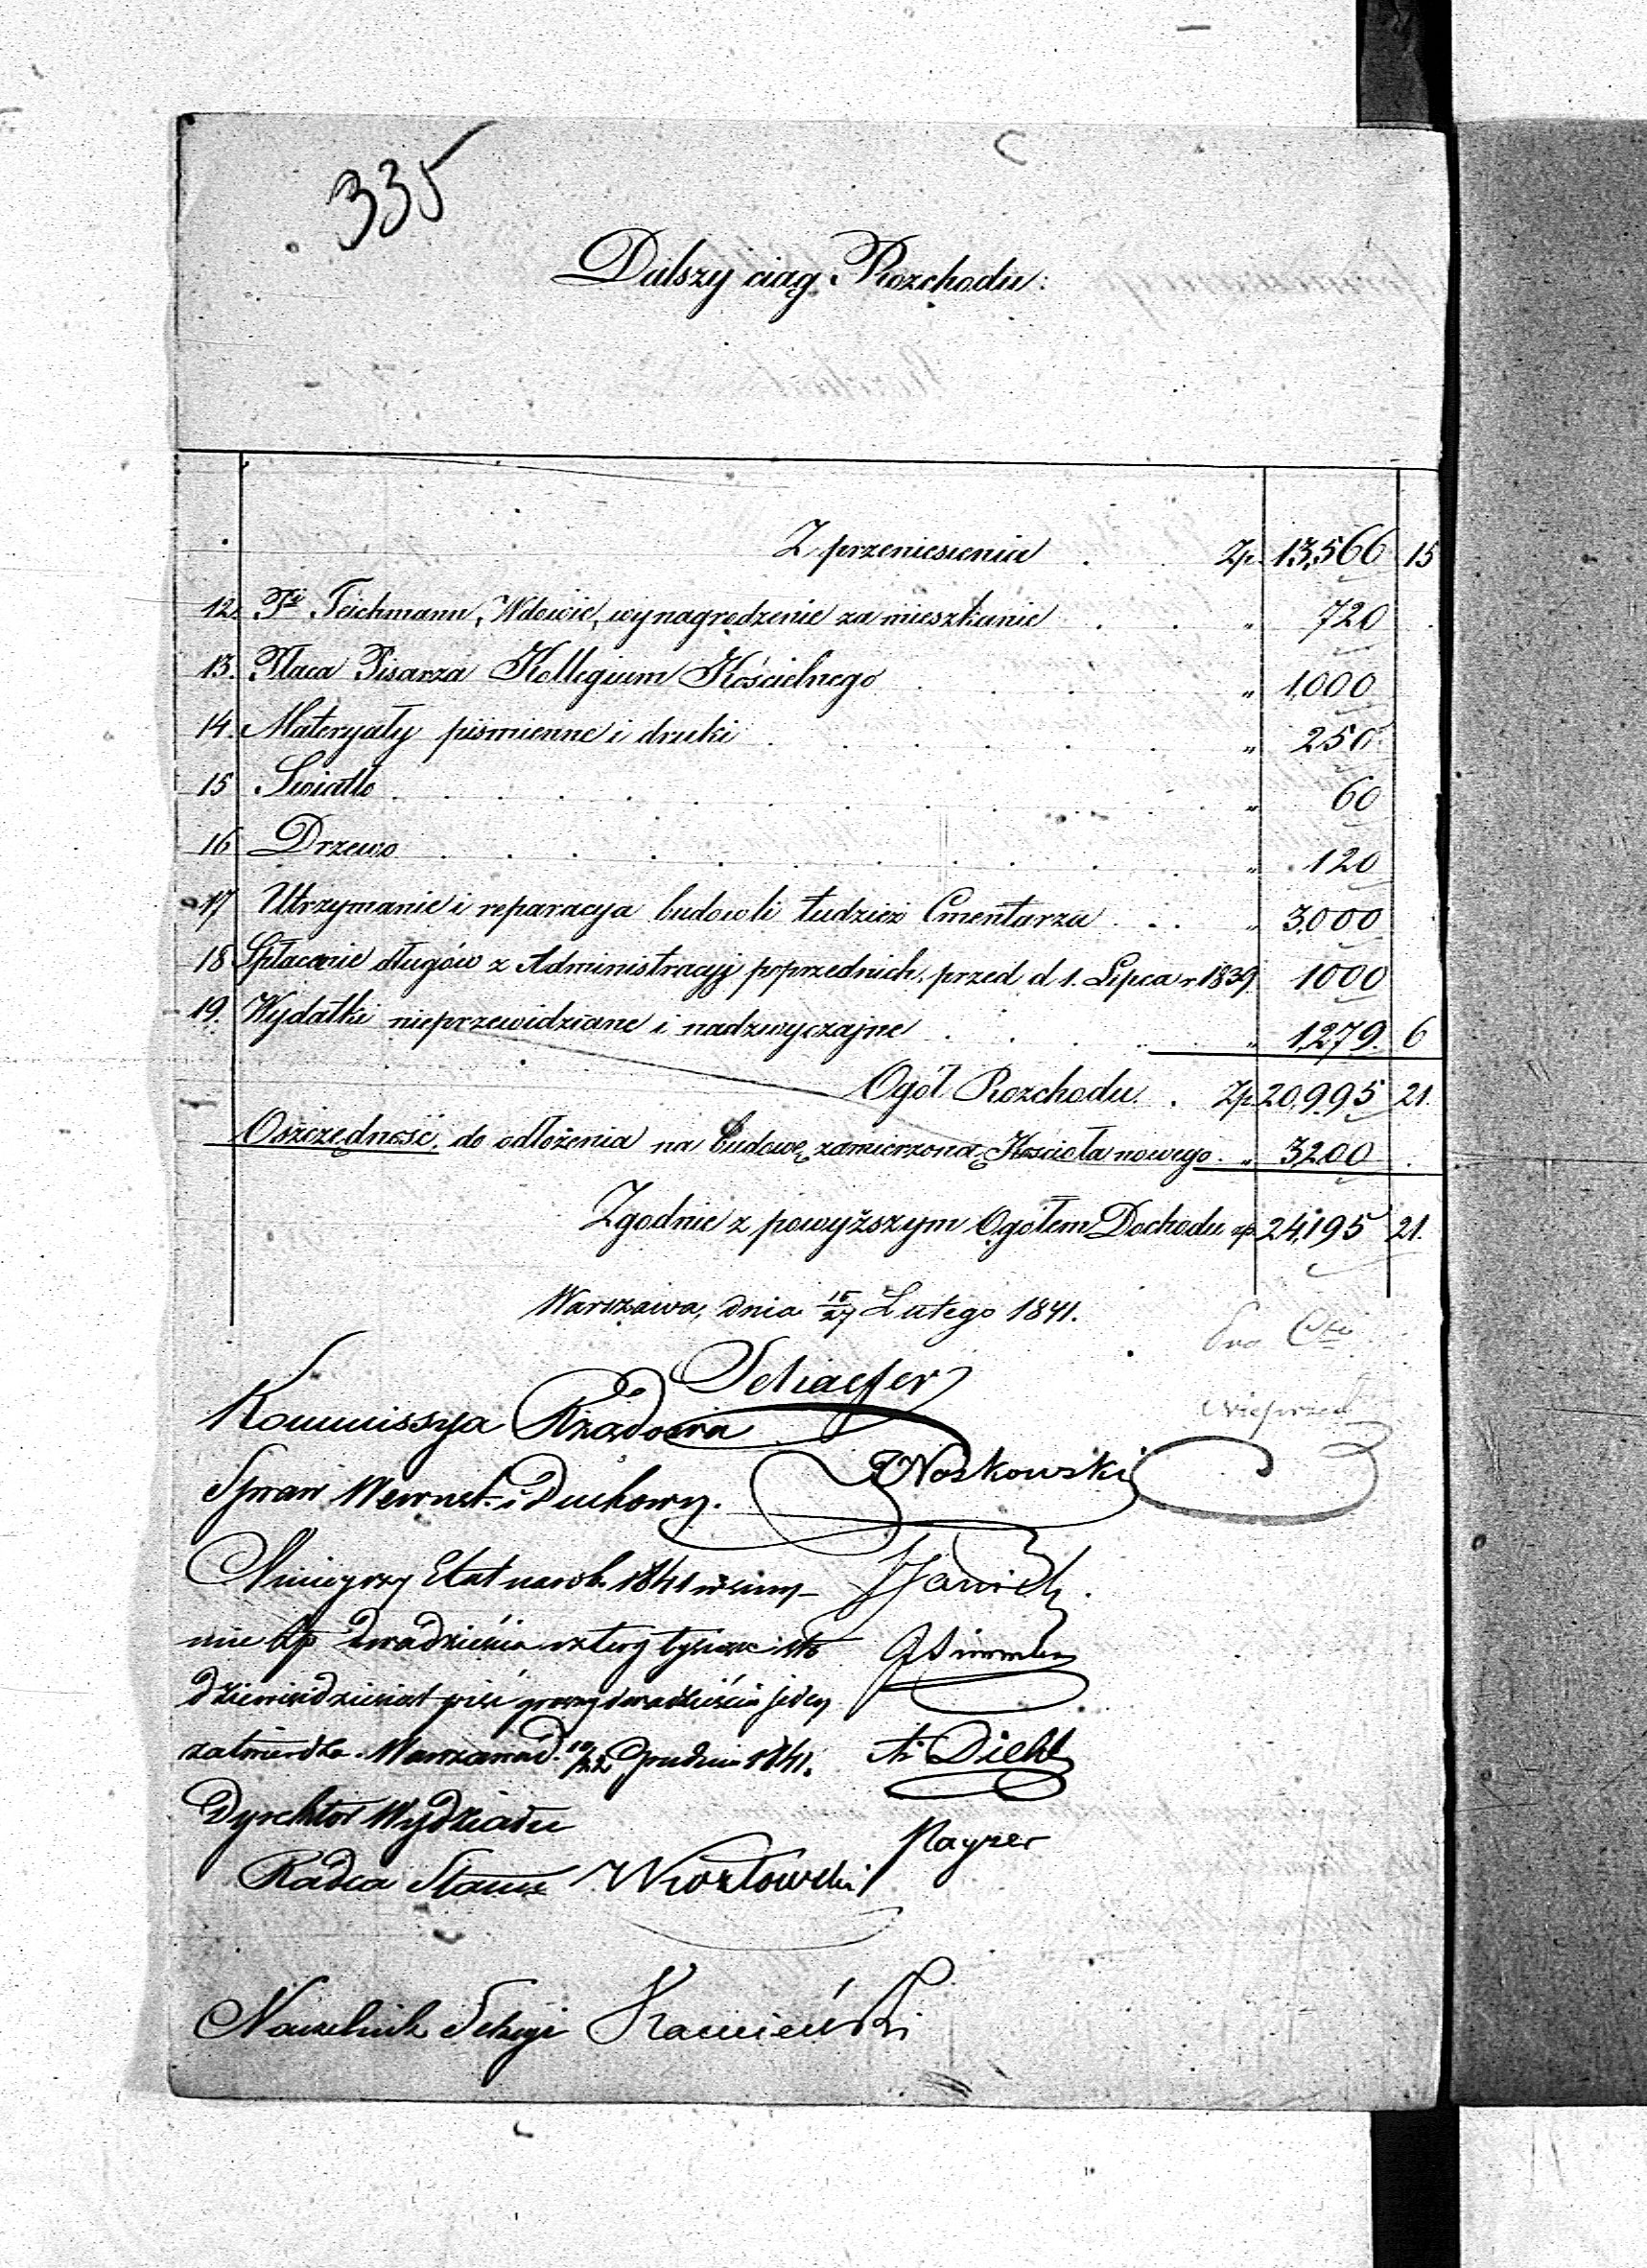 335
Dalszy ciąg Rozchodu:
Z przeniesienia . . Zp. 13,566 15
12. Pi Teichmann, Wdowie, wynagrodzenie za mieszkanie . . " 720 .
13. Płaca Pisarza Kollegium Kościelnego . . . . " 1,000
14. Materyały piśmienne i druki . . . . . . " 250
15 Swiatło . . . . . . . . . . " 60
16 Drzewo . . . . . . . . . . " 120
17 Utrzymanie i reparacya budowli tudzież Cmentarza . . . " 3,000
18 Spłacenie długów z Administracyj poprzednich, przed d. 1. Lipca r. 1839 1000
19. Wydatki nieprzewidziane i nadzwyczajne . . . . " 1,279. 6
Ogół Rozchodu . Zp. 20,995 21.
Oszczędność, do odłożenia na budowę zamierzoną Kościoła nowego . " 3200 .
Zgodnie z powyższym Ogółem Dochodu zp. 24,195 21.
Warszawa, dnia 15/27 Lutego 1841.
Schaefer
Kommissya Rządowa
Noskowski
Spraw Wewnet. i Duchowy.
Niniejszy Etat na rok 1841 w summ-
Jawich.
mie Zp dwadzieścia cztery tysiące sto
dziewiedziesiąt pięć groszy dwadzieścia jeden
zatwierdza. Warszawa d. 10/22 Grudnia 1841.
A. Diehl
Dyrektor Wydziału
Kayzer
Radca Stanu Kozłowski
Naczelnik Sekcyi Kamieński